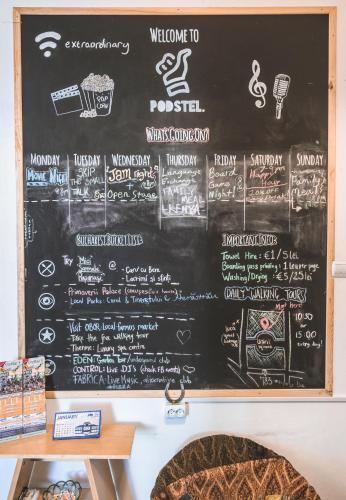 extraordinary
WELCOME TO
PODSTEL.
POP CORN
WHAT'S GOING ON?
MONDAY TUESDAY WEDNESDAY THURSDAY FRIDAY SATURDAY SUNDAY
MOVIE NIGHT
SKIP THE SMALL TALK
Jam night + Open Stage
Language Exchange
FAMILY MEAL
KENYA
Board Game Night!
Happy Hour
Family Meal
BUCHAREST BUCKET LIST
IMPORTANT INFO
Try Mici
- Caru' cu Bere
- Lacrimi si Sfinti
Towel Hire : €1/5 lei
Boarding pass printing : 1 leu per page
Washing/Drying : €5/25 lei
- Primaverii Palace
- Local Parks: Carol & Tineretului &
DAILY WALKING TOURS
- Visit OBOR Local farmers market
- Take the free walking tour
- Therme: Luxury spa centre
EDEN: Garden bar/underground club
CONTROL: Live DJ's (check FB event)
FABRICA: Live Music, alternative club
Meet here!
10:30 or 15:00 every day!
JANUARY